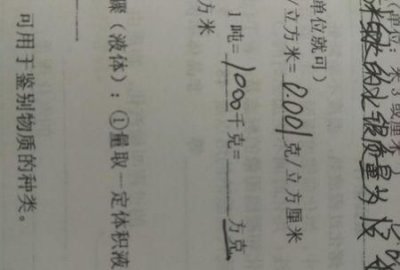 单位就可）
/立方米=0.001克/立方厘米
1吨=1000千克=____方克
方米
骤（液体）：①量取一定体积液
可用于鉴别物质的种类。